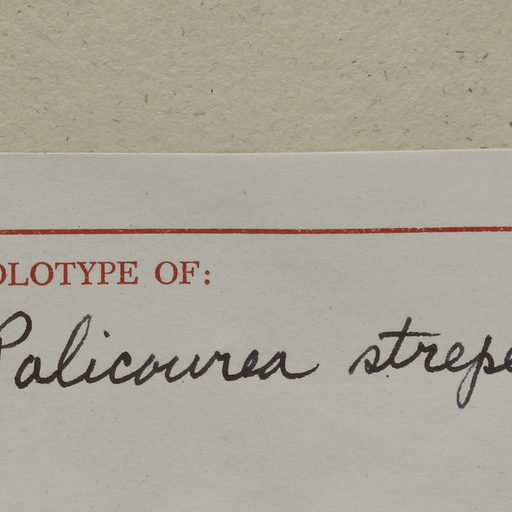 OLOTYPE OF:
Palicourea strepe